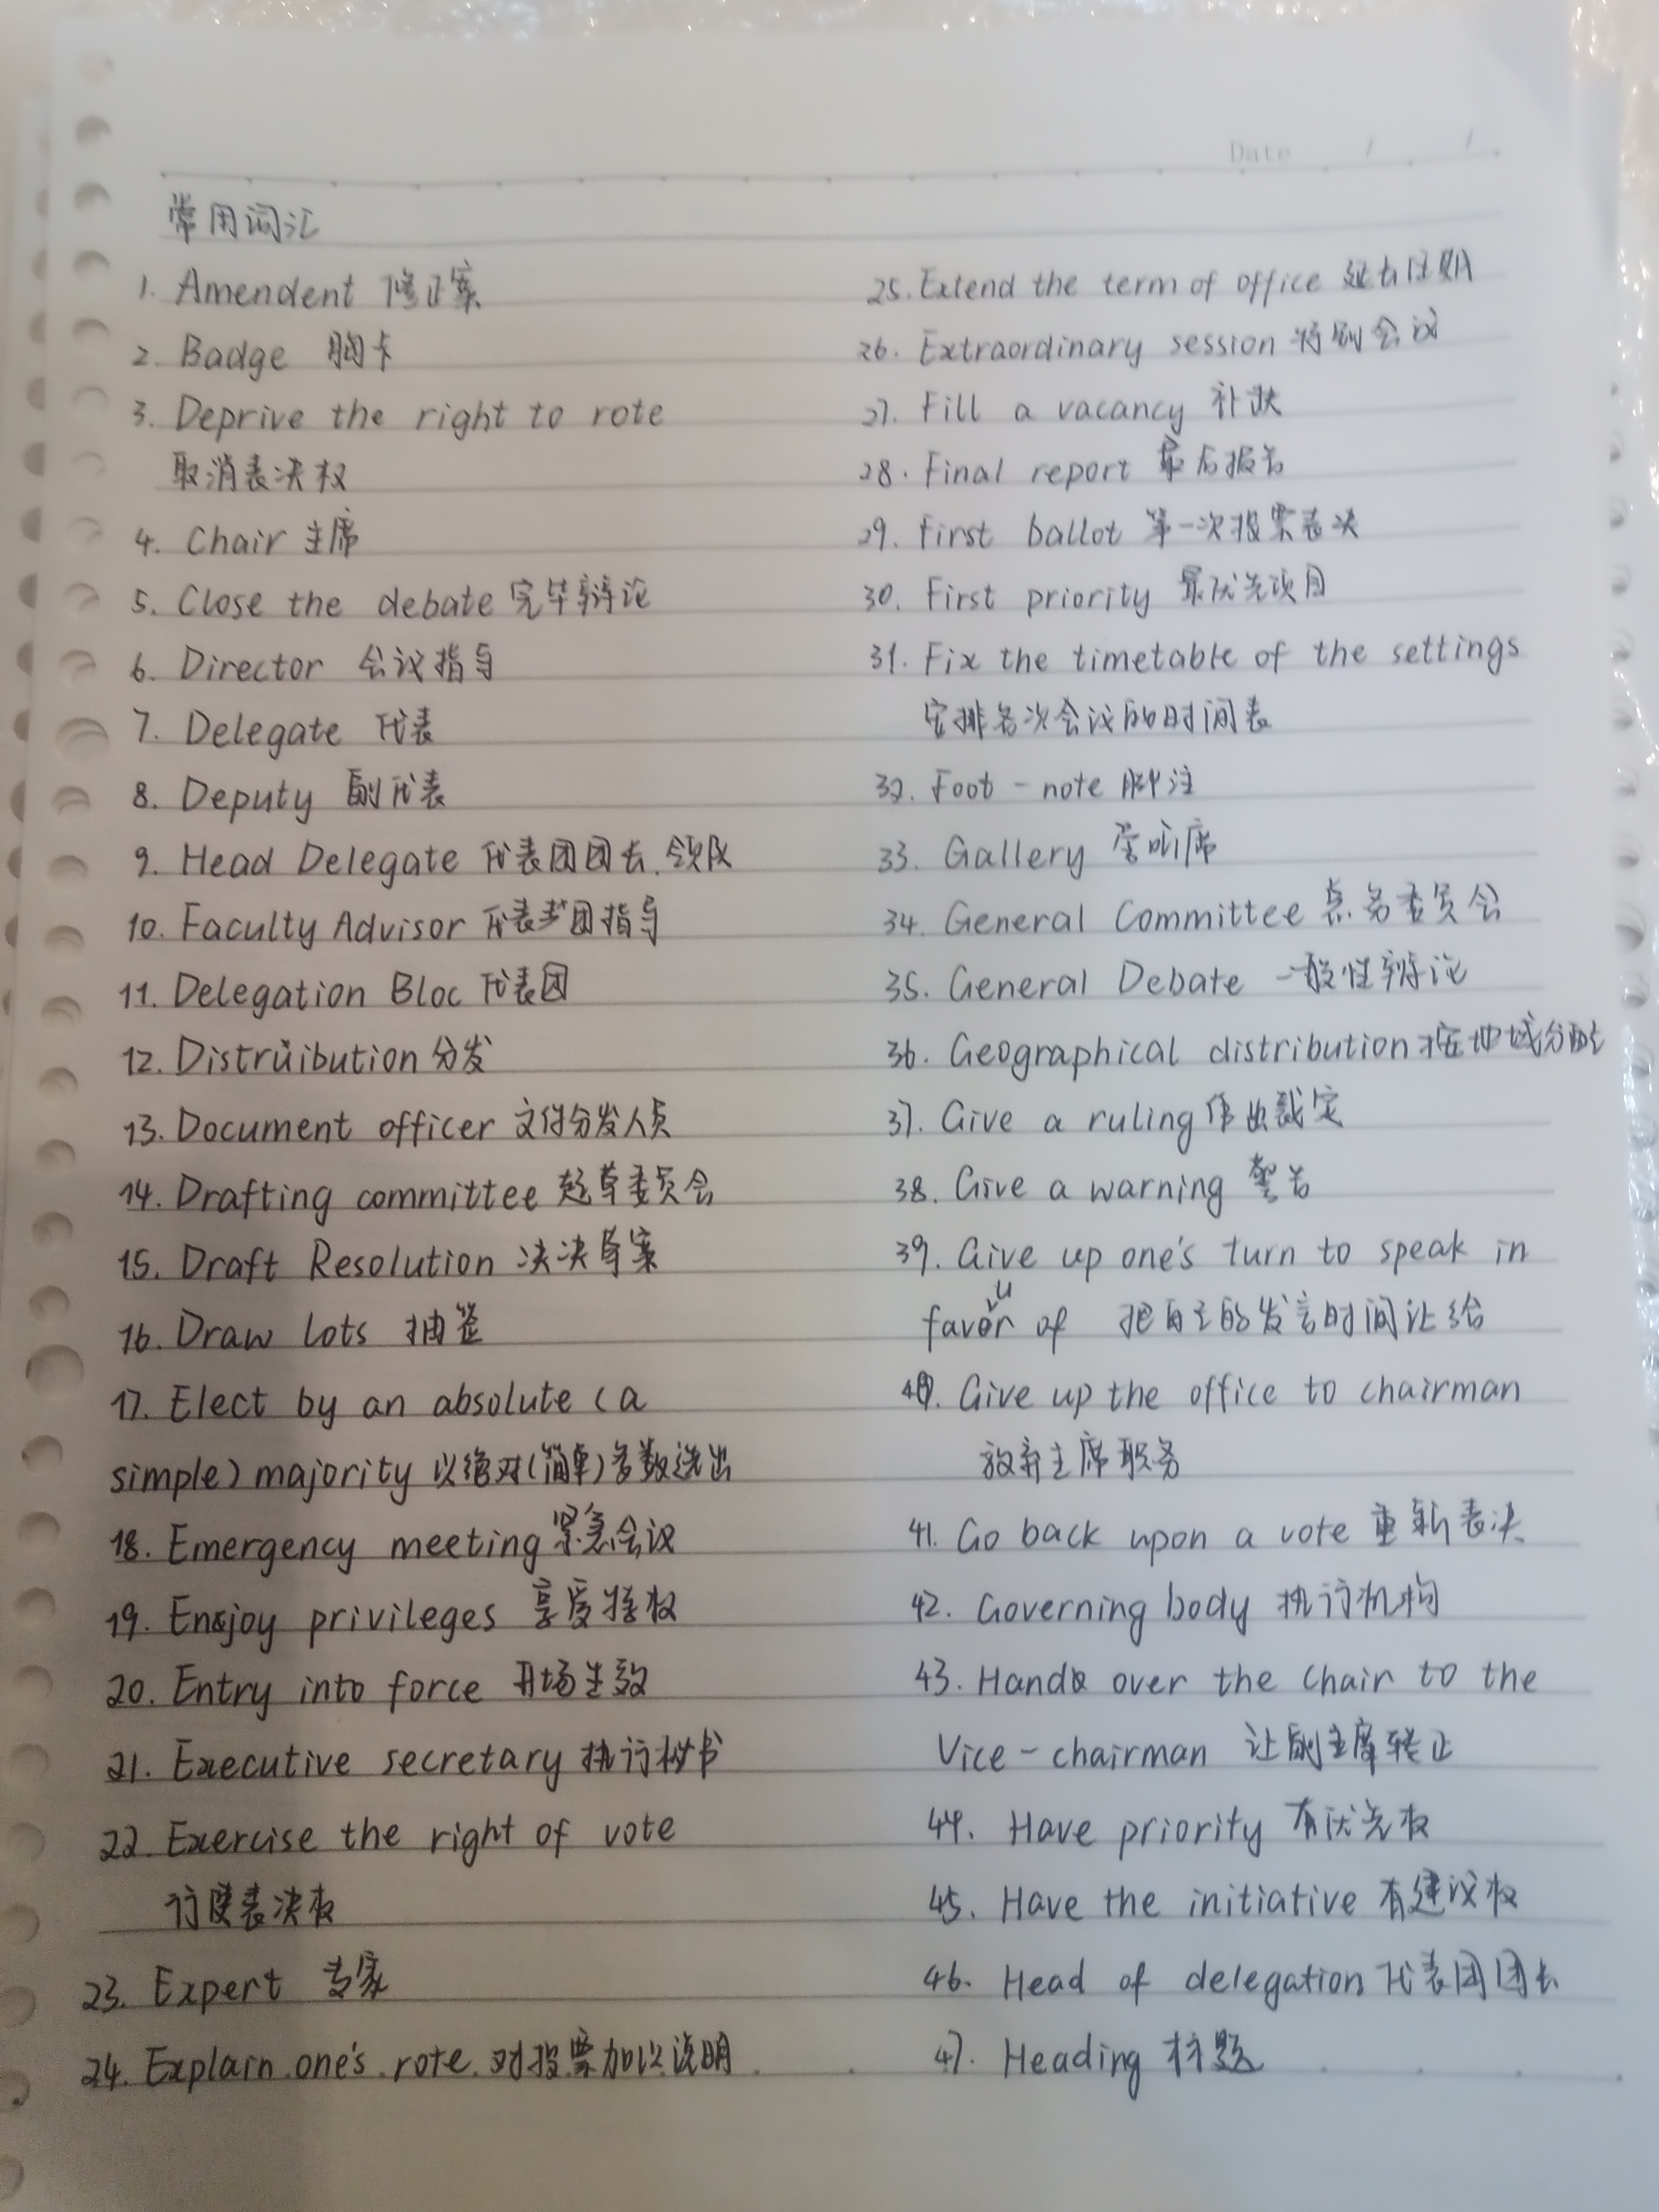 Date / /
常用词汇
1. Amendent 修正案
2. Badge 胸卡
3. Deprive the right to rote
取消表决权
4. Chair 主席
5. Close the debate 完毕辩论
6. Director 会议指导
7. Delegate 代表
8. Deputy 副代表
9. Head Delegate 代表团团长、领队
10. Faculty Advisor 代表团指导
11. Delegation Bloc 代表团
12. Distribution 分发
13. Document officer 文件分发人员
14. Drafting committee 起草委员会
15. Draft Resolution 决决草案
16. Draw lots 抽签
17. Elect by an absolute (a
simple) majority 以绝对(简单)多数选出
18. Emergency meeting 紧急会议
19. Enjoy privileges 享受特权
20. Entry into force 开场生效
21. Executive secretary 执行秘书
22. Exercise the right of vote
行使表决权
23. Expert 专家
24. Explain one's rote 对投票加以说明
25. Extend the term of office 延长任期
26. Extraordinary session 特别会议
27. Fill a vacancy 补缺
28. Final report 最后报告
29. First ballot 第一次投票表决
30. First priority 最优先项目
31. Fix the timetable of the settings
安排各次会议的时间表
32. Foot-note 脚注
33. Gallery 旁听席
34. General Committee 总务委员会
35. General Debate 一般性辩论
36. Geographical distribution 按地域分配
37. Give a ruling 作出裁定
38. Give a warning 警告
39. Give up one's turn to speak in
favour of 把自己的发言时间让给
40. Give up the office to chairman
放弃主席职务
41. Go back upon a vote 重新表决
42. Governing body 执行机构
43. Hand over the chair to the
Vice-chairman 让副主席转正
44. Have priority 有优先权
45. Have the initiative 有建议权
46. Head of delegation 代表团团长
47. Heading 标题